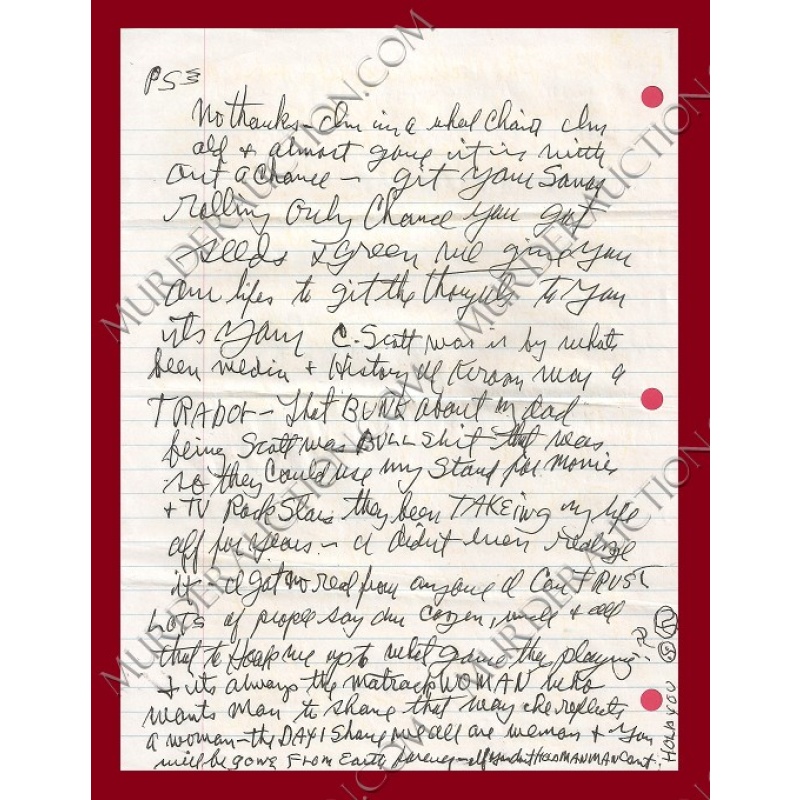 PS
No thanks - Im in a wheel Chair Im
old & almost gone it is with
out a Chance - git your Song
rolling only Chance you got
seeds & green we give you
our lifes to git the thoughts to you
its your C. Scott was it by whats
been media & History
TRADOR - That BUNK about my dad
being Scott was BULL shit that was
so they could use my Stand for movies
& TV Rock Stars they been TAKEing my life
off for years - I didnt even realize
it - I got no real from anyone I Can TRUST
LOTS of people say Im cozen, uncle & all
that to Hook me up to what game they playing
& its always the WOMAN who
wants man to share that way she reflects
a woman - the DAY I Share we all are woman & you
will be gone From Earth forever - HOLD MAN MAN Cant
HOLD YOU
MURDERAUCTION.COM
MURDERAUCTION.COM
MURDERAUCTION.COM
MURDERAUCTION.COM